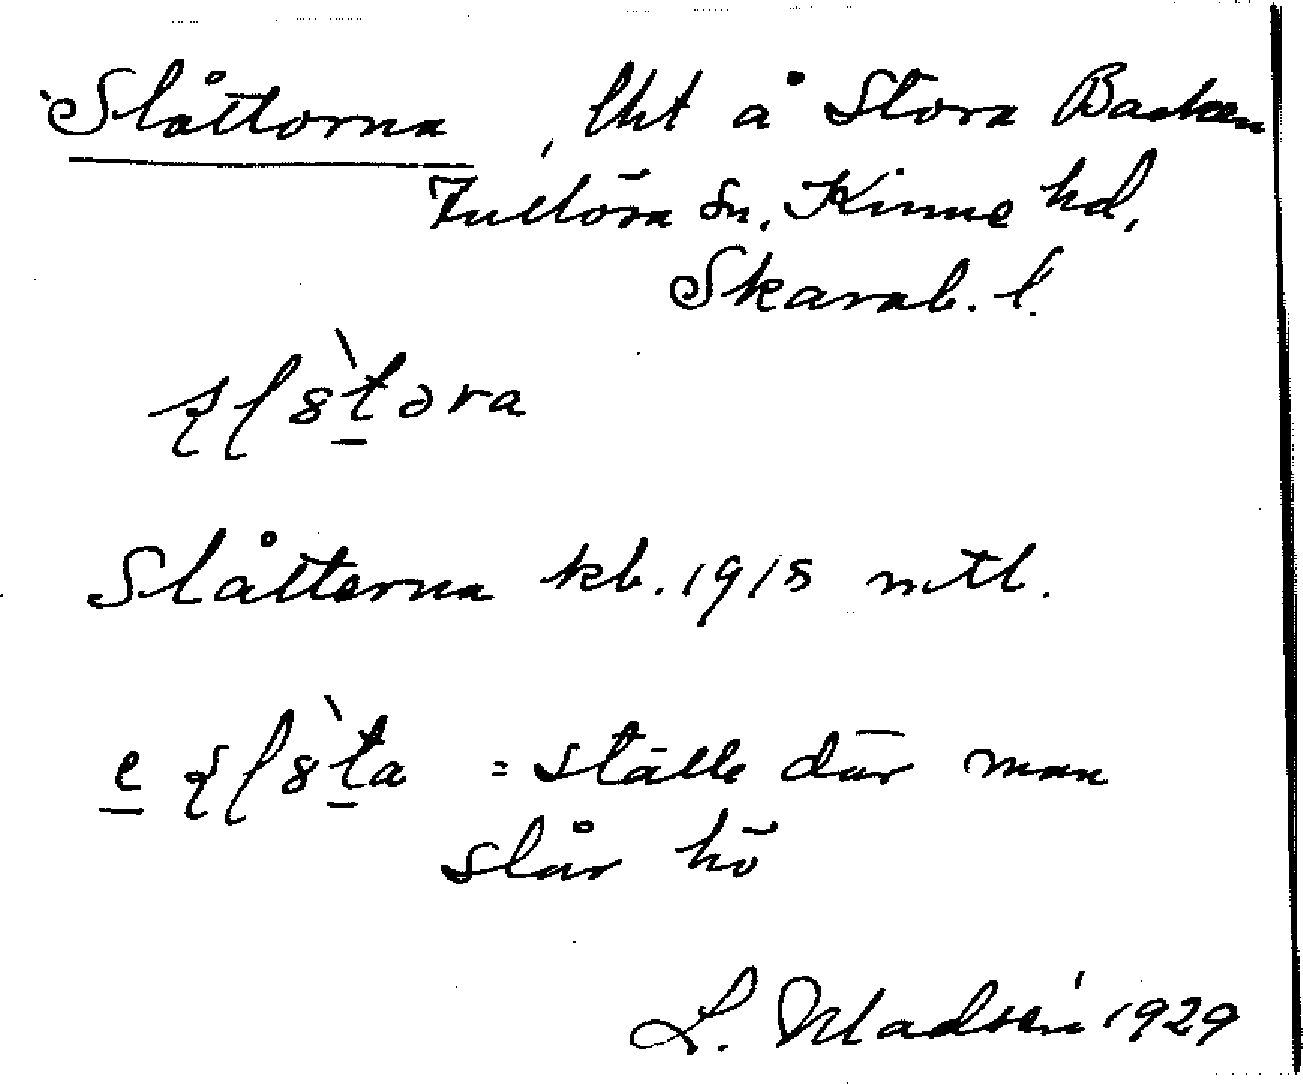 Slåttorna, lht å Stora Backen
Fullösa sn. Kinne hd,
Skarab. l.
Slåtterna kb. 1915 mtl.
= ställe där man
slår hö
L. Madsén 1929